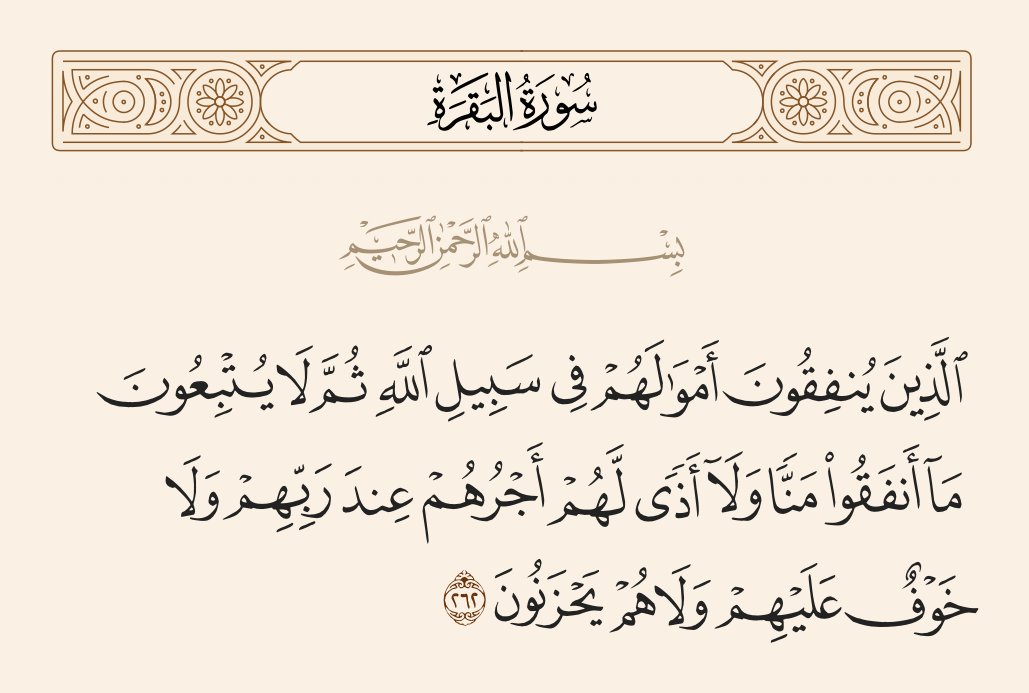 سُورَةُ البَقَرَةِ
بِسْمِ ٱللَّهِ ٱلرَّحْمَٰنِ ٱلرَّحِيمِ
ٱلَّذِينَ يُنفِقُونَ أَمْوَٰلَهُمْ فِى سَبِيلِ ٱللَّهِ ثُمَّ لَا يُتْبِعُونَ
مَآ أَنفَقُوا۟ مَنًّا وَلَآ أَذًى لَّهُمْ أَجْرُهُمْ عِندَ رَبِّهِمْ وَلَا
خَوْفٌ عَلَيْهِمْ وَلَا هُمْ يَحْزَنُونَ ٢٦٢